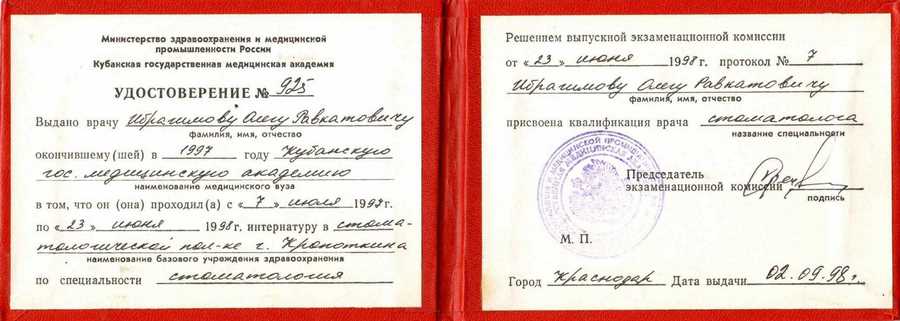 Министерство здравоохранения и медицинской
промышленности России
Кубанская государственная медицинская академия
УДОСТОВЕРЕНИЕ № 925
Выдано врачу Ибрагимову Олегу Равкатовичу
фамилия, имя, отчество
окончившему (шей) в 1997 году Кубанскую
гос. медицинскую академию
наименование медицинского вуза
в том, что он (она) проходил(а) с «7» июля 1997г.
по «23» июня 1998г. интернатуру в стома-
тологической пол-ке г. Кропоткина
наименование базового учреждения здравоохранения
по специальности стоматология
Решением выпускной экзаменационной комиссии
от «23» июня 1998г. протокол № 7
Ибрагимову Олегу Равкатовичу
фамилия, имя, отчество
присвоена квалификация врача стоматолога
название специальности
Председатель
экзаменационной комиссии
подпись
М. П.
Город Краснодар Дата выдачи 02.09.98г.